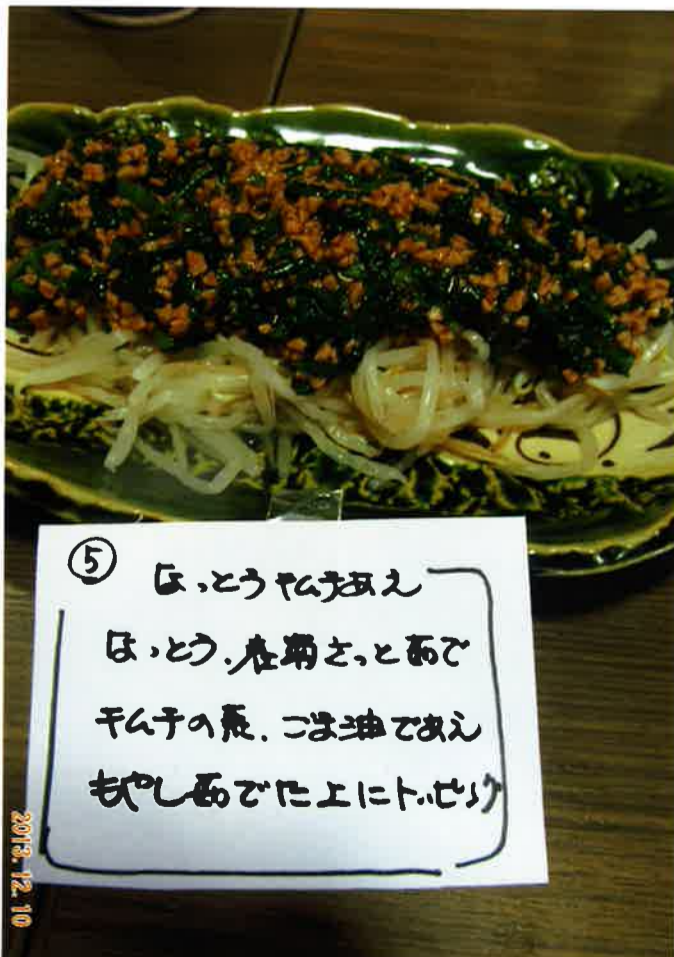 ⑤ なっとうキムチあえ
なっとう、春菊さっと茹で
キムチの素、ごま油であえ
もやし茹でた上にトッピング
2013.12.10